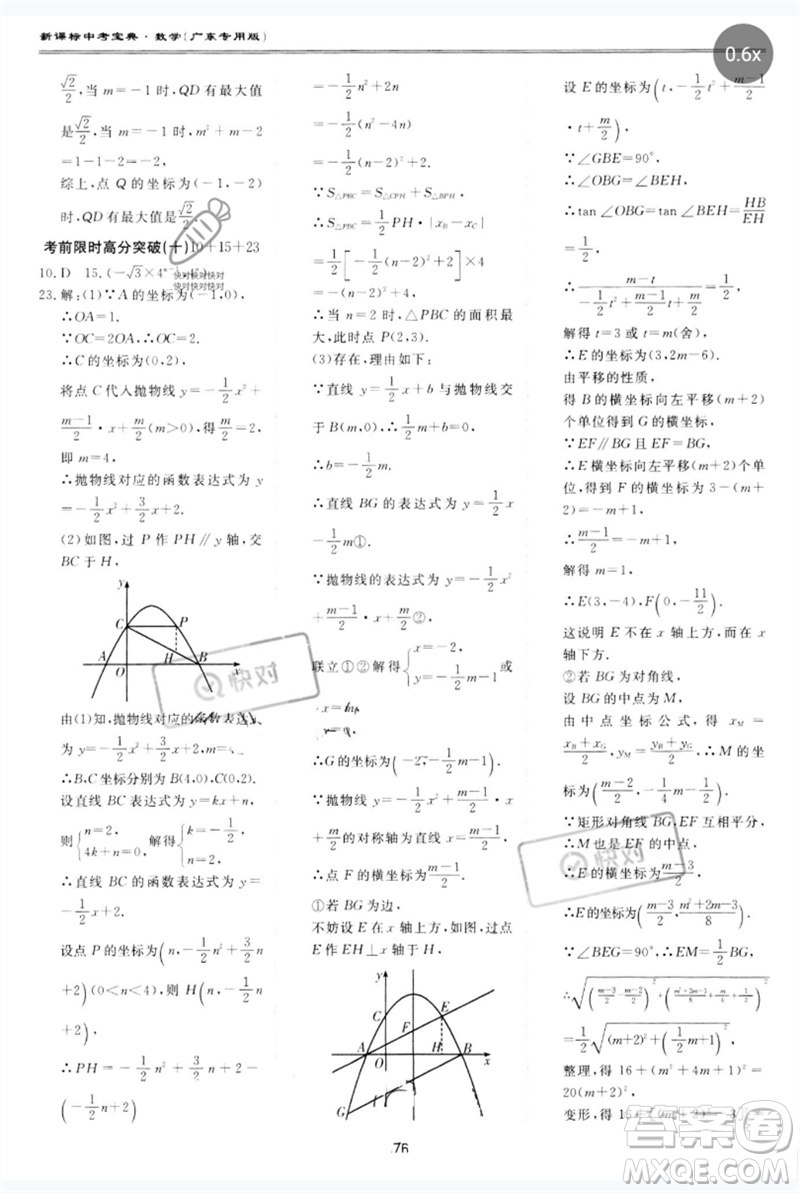 新课标中考宝典·数学(广东专用版)
0.6x
√2/2,当 m=-1时,QD有最大值
是√2/2,当 m=-1时,m²+m-2
=1-1-2=-2.
综上,点 Q 的坐标为(-1,-2)
时,QD有最大值√2/2.
考前限时高分突破(十)10+15+23
10.D 15.(-√3×4ⁿ
快对快对快对
快对快对快对
23.解:(1)∵A的坐标为(-1,0),
∴OA=1.
∵OC=2OA,∴OC=2.
∴C的坐标为(0,2).
将点C代入抛物线y=-1/2x²+
(m-1)/2·x+m/2(m>0),得m/2=2,
即 m=4,
∴抛物线对应的函数表达式为y
=-1/2x²+3/2x+2.
(2)如图,过 P 作 PH∥y 轴,交
BC于H,
y
C
P
H
A
O
B
x
由(1)知,抛物线对应的函数表达式
为y=-1/2x²+3/2x+2.
∴B,C坐标分别为B(4,0),C(0,2).
设直线BC的表达式为y=kx+n,
则{n=2, 4k+n=0, 解得{k=-1/2, n=2.
∴直线 BC 的函数表达式为 y
=-1/2x+2.
设点P的坐标为(n,-1/2n²+3/2n
+2)(0<n<4),则H(n,-1/2n
+2),
∴PH=-1/2n²+3/2n+2-
(-1/2n+2)
=-1/2n²+2n
=-1/2(n²-4n)
=-1/2(n-2)²+2.
∵S△PBC=S△CPH+S△BPH,
∴S△PBC=1/2PH·|xB-xC|
=1/2[-1/2(n-2)²+2]×4
=-(n-2)²+4,
∴当 n=2 时,△PBC 的面积最
大,此时点P(2,3).
(3)存在,理由如下:
∵直线y=1/2x+b与抛物线交
于B(m,0),∴1/2m+b=0.
∴b=-1/2m.
∴直线 BG 的表达式为y=1/2x
-1/2m①.
∵抛物线的表达式为y=-1/2x²
+(m-1)/2·x+m/2②,
联立①②解得{x=-2,
或
∴G的坐标为(-2,-1/2m-1).
∵抛物线y=-1/2x²+(m-1)/2·
x+m/2的对称轴为直线x=(m-1)/2,
∴点F的横坐标为(m-1)/2.
①若BG为边,
不妨设E在x轴上方,如图,过点
E作EH⊥x轴于H,
y
C
E
F
A
O
H
B
x
G
设 E 的坐标为(t,-1/2t²+(m-1)/2
·t+m/2),
∵∠GBE=90°,
∴∠OBG=∠BEH,
∴tan∠OBG=tan∠BEH=HB/EH
=1/2,
∴(m-t)/(-1/2t²+(m-1)/2·t+m/2)=1/2.
解得t=3或t=m(舍),
∴E的坐标为(3,2m-6).
由平移的性质,
得 B 的横坐标向左平移(m+2)
个单位得到G的横坐标,
∵EF∥BG且EF=BG,
∴E横坐标向左平移(m+2)个单
位,得到 F 的横坐标为 3-(m+2)
=-m+1,
∴(m-1)/2=-m+1,
解得 m=1,
∴E(3,-4),F(0,-11/2).
这说明E不在x轴上方,而在x
轴下方.
②若BG为对角线,
设BG的中点为M,
由中点坐标公式,得 xM=
(xB+xG)/2,yM=(yB+yG)/2,∴M的坐
标为((m-2)/2,-1/4m-1/2).
∵矩形对角线BG,EF互相平分,
∴M也是EF的中点,
∴E的横坐标为(m-3)/2,
∴E的坐标为((m-3)/2,(m²+2m-3)/8).
∵∠BEG=90°,∴EM=1/2BG,
∴√(((m-3)/2-(m-2)/2)²+((m²+2m-3)/8+1/4m+1/2)²)
=1/2√((m+2)²+(1/2m+1)²).
整理,得16+(m²+4m+1)²=
20(m+2)²,
变形,得16+[(m+2)²-3]²
76
答案圈
MXQE.COM
快对
快对